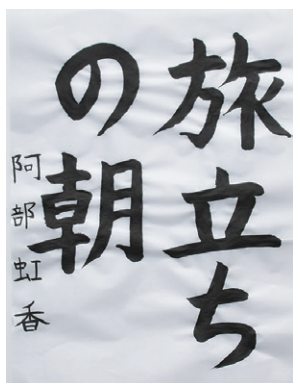 旅立ち
の朝
阿部虹香